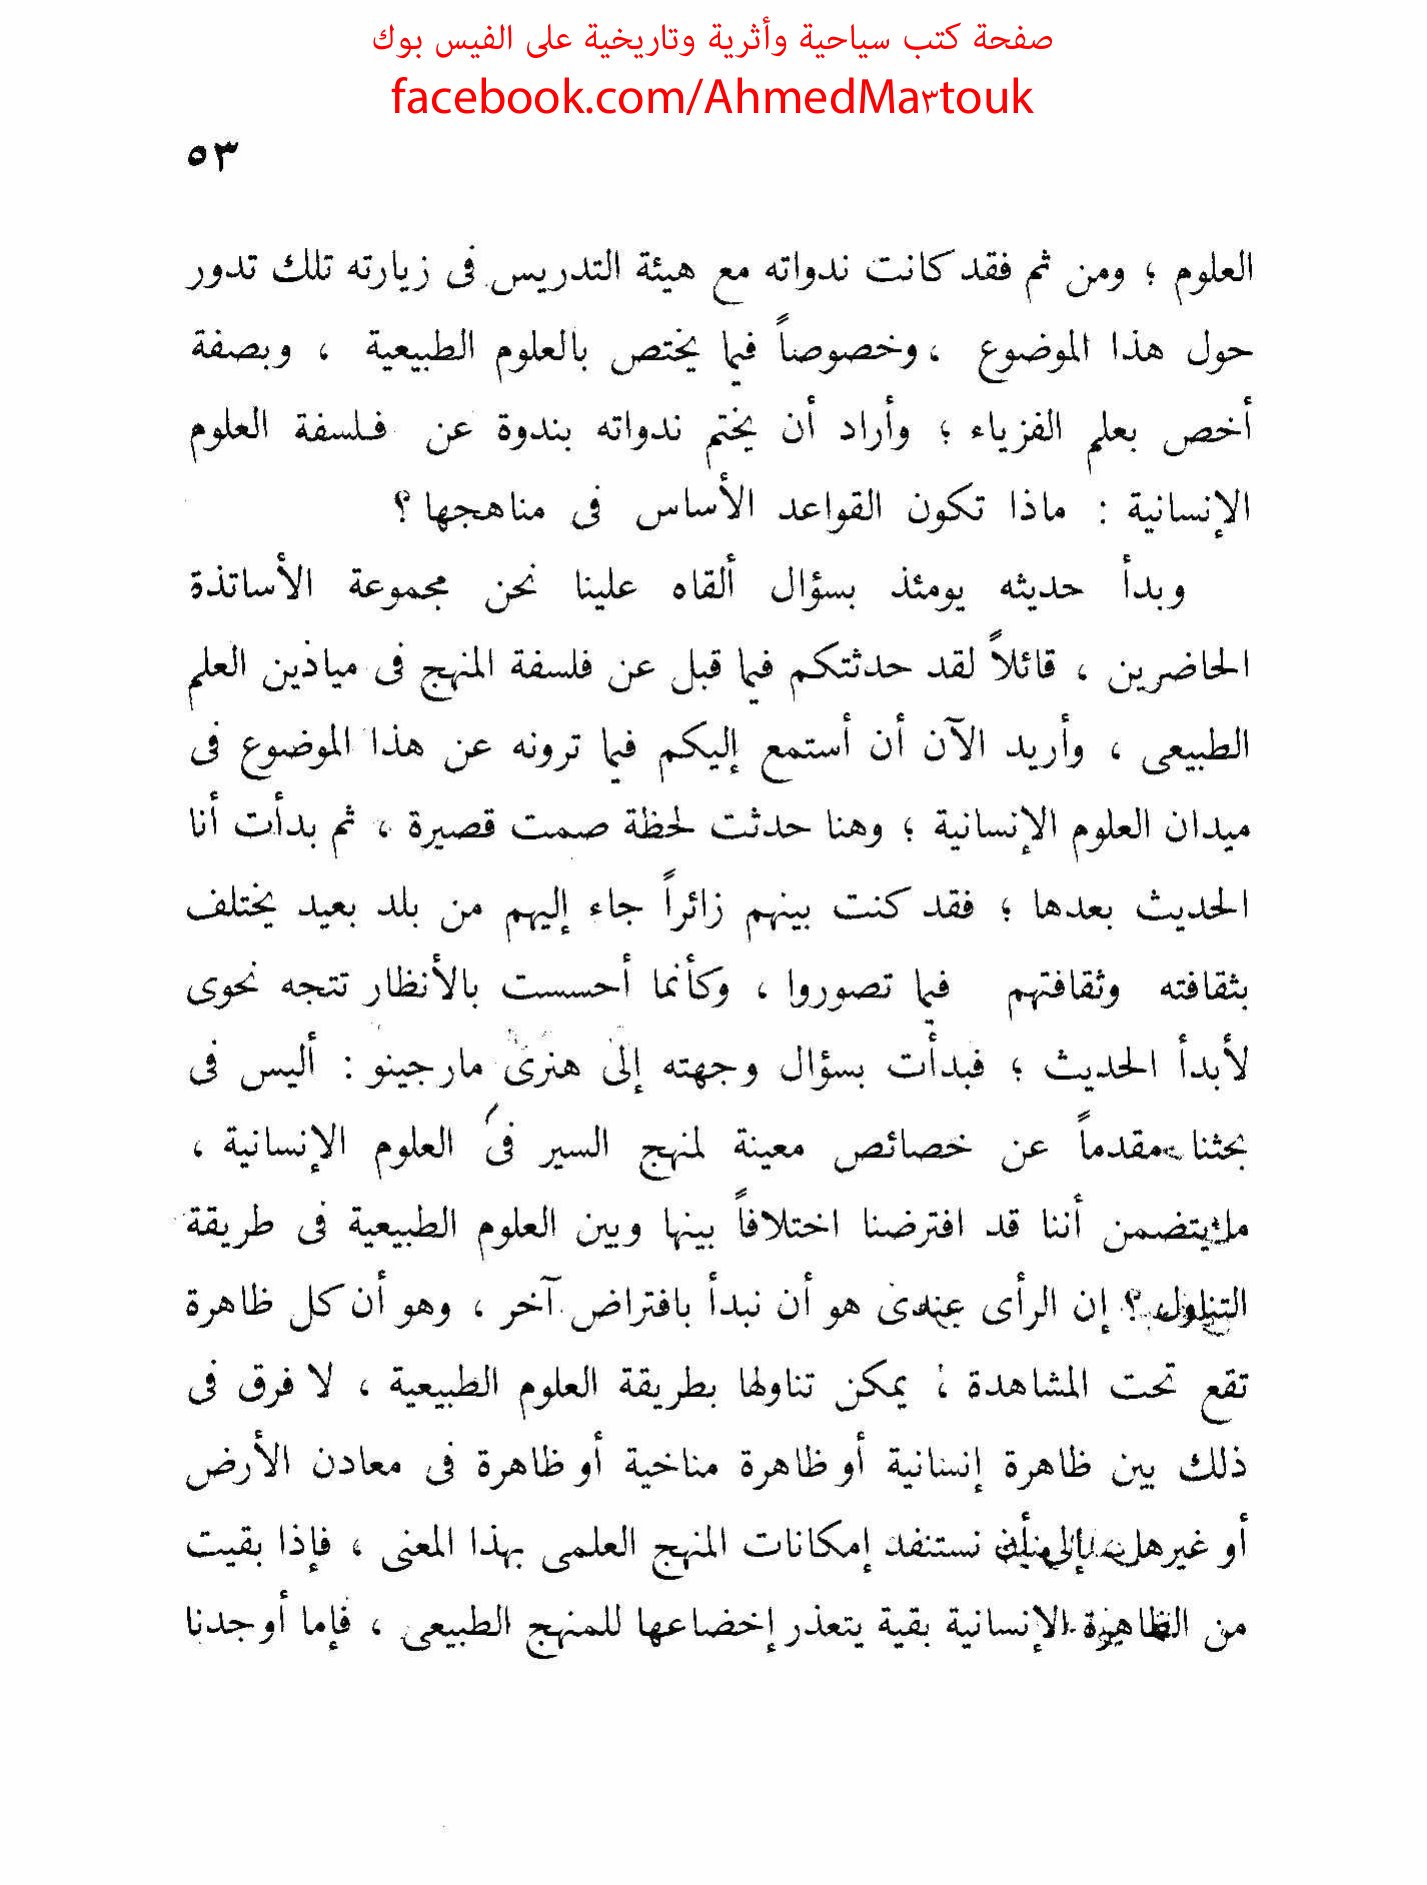 صفحة كتب سياحية وأثرية وتاريخية على الفيس بوك
facebook.com/AhmedMa٣touk
٥٣
العلوم ؛ ومن ثم فقد كانت ندواته مع هيئة التدريس فى زيارته تلك تدور
حول هذا الموضوع ، وخصوصاً فيما يختص بالعلوم الطبيعية ، وبصفة
أخص بعلم الفزياء ؛ وأراد أن يختم ندواته بندوة عن فلسفة العلوم
الإنسانية : ماذا تكون القواعد الأساس فى مناهجها ؟
وبدأ حديثه يومئذ بسؤال ألقاه علينا نحن مجموعة الأساتذة
الحاضرين ، قائلاً لقد حدثتكم فيما قبل عن فلسفة المنهج فى مياذين العلم
الطبيعى ، وأريد الآن أن أستمع إليكم فيما ترونه عن هذا الموضوع فى
ميدان العلوم الإنسانية ؛ وهنا حدثت لحظة صمت قصيرة ، ثم بدأت أنا
الحديث بعدها ؛ فقد كنت بينهم زائراً جاء إليهم من بلد بعيد يختلف
بثقافته وثقافتهم فيما تصوروا ، وكأنما أحسست بالأنظار تتجه نحوى
لأبدأ الحديث ؛ فبدأت بسؤال وجهته إلى هنرى مارجينو : أليس فى
بحثنا مقدماً عن خصائص معينة لمنهج السير فى العلوم الإنسانية ،
ما يتضمن أننا قد افترضنا اختلافاً بينها وبين العلوم الطبيعية فى طريقة
التناول ؟ إن الرأى عندى هو أن نبدأ بافتراض آخر ، وهو أن كل ظاهرة
تقع تحت المشاهدة ، يمكن تناولها بطريقة العلوم الطبيعية ، لا فرق فى
ذلك بين ظاهرة إنسانية أو ظاهرة مناخية أو ظاهرة فى معادن الأرض
أو غيرها إلى أن نستنفد إمكانات المنهج العلمى بهذا المعنى ، فإذا بقيت
من الظاهرة الإنسانية بقية يتعذر إخضاعها للمنهج الطبيعى ، فإما أوجدنا